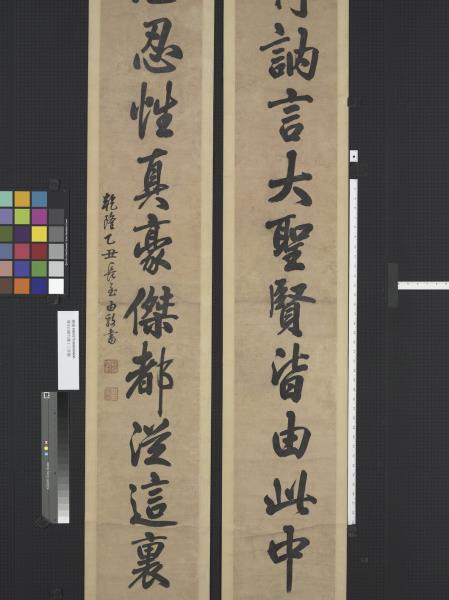 訥言大聖賢皆由此中
忍性真豪傑都從這裏
乾隆乙丑長至由敦書